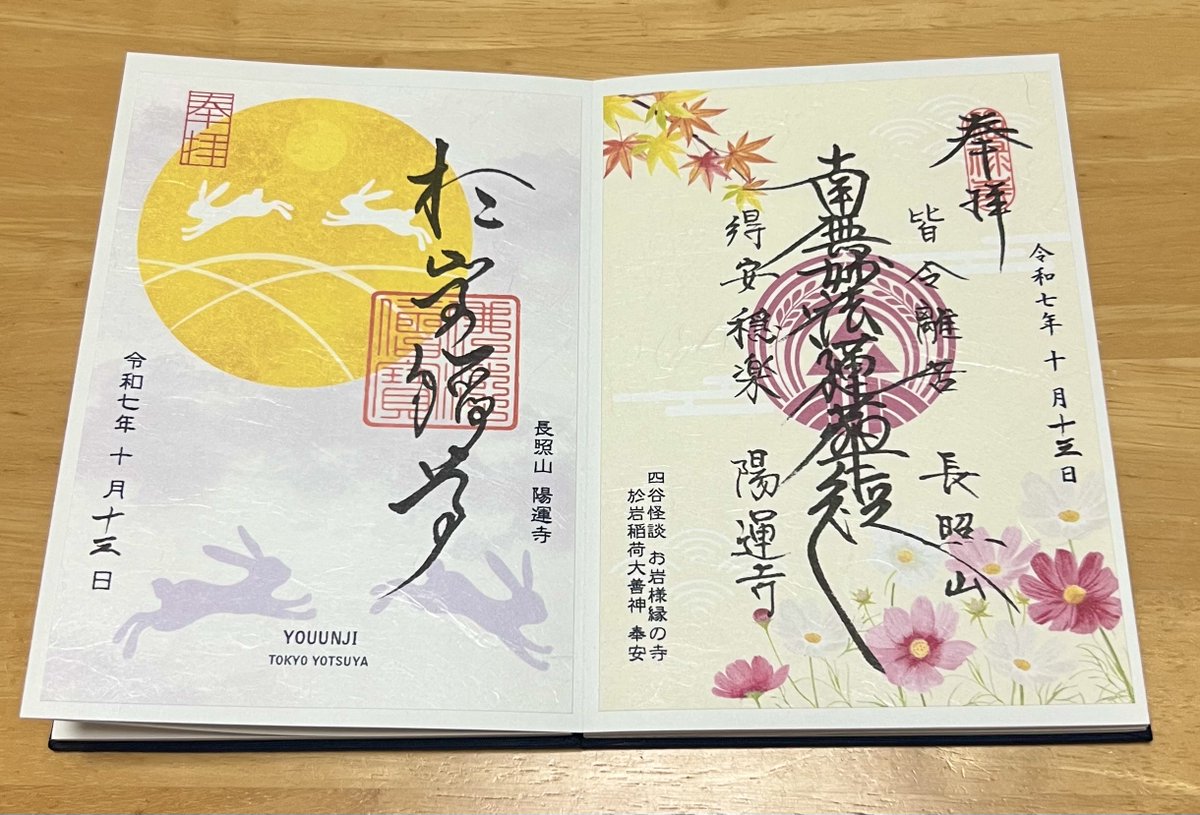 奉拝
令和七年 十月十三日
皆令離苦 長照山
南無妙法蓮華経
得安穏楽 陽運寺
四谷怪談 お岩様縁の寺
於岩稲荷大善神 奉安
長照山 陽運寺
於岩
奉拝
令和七年 十月十三日
YOUUNJI
TOKYO YOTSUYA